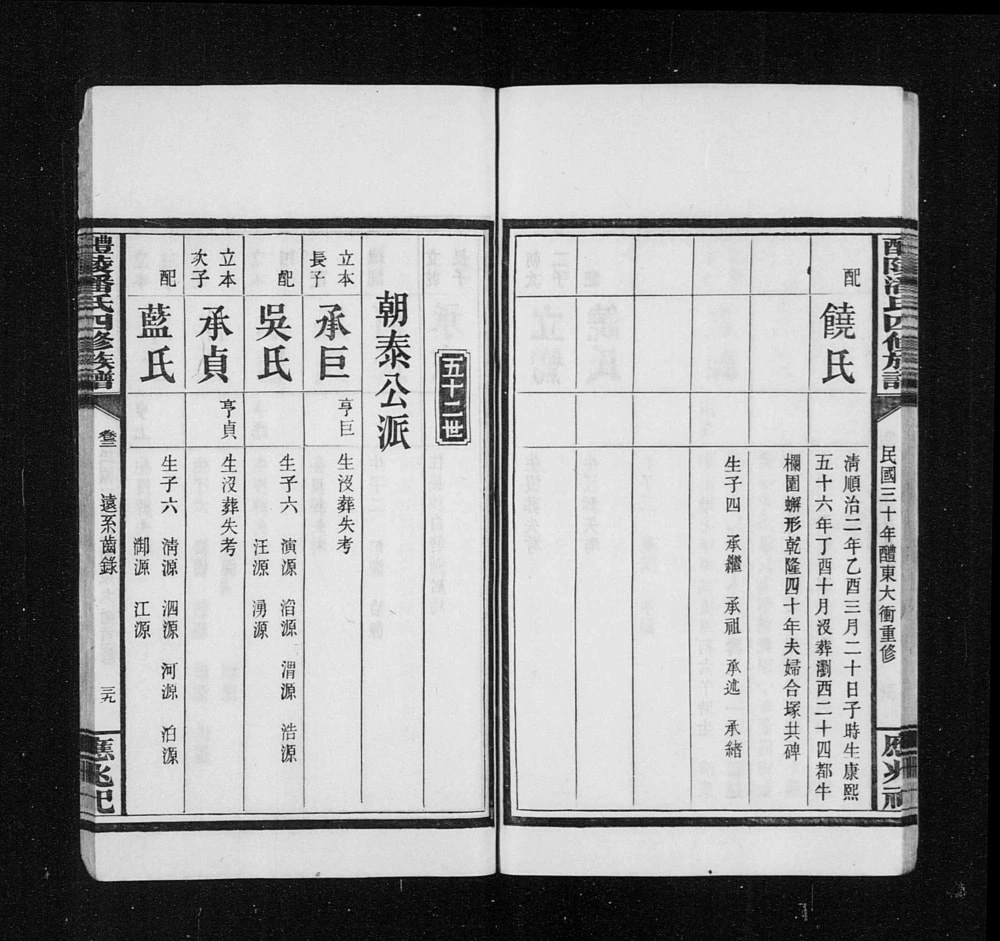 民國三十年醴東大衝重修
配
饒氏
清順治二年乙酉三月二十日子時生康熙
五十六年丁酉十月沒葬瀏西二十四都牛
欄園蠏形乾隆四十年夫婦合塚共碑
生子四 承繼 承祖 承述 承緒
五十二世
朝泰公派
立本
長子
承巨
亨巨
生沒葬失考
配
吳氏
生子六 演源 滔源 渭源 浩源
汪源 湧源
立本
次子
承貞
亨貞
生沒葬失考
配
藍氏
生子六 清源 泗源 河源 泊源
御源 江源
醴陵潘氏四修族譜
卷三
遠系齒錄
三九
應兆祀